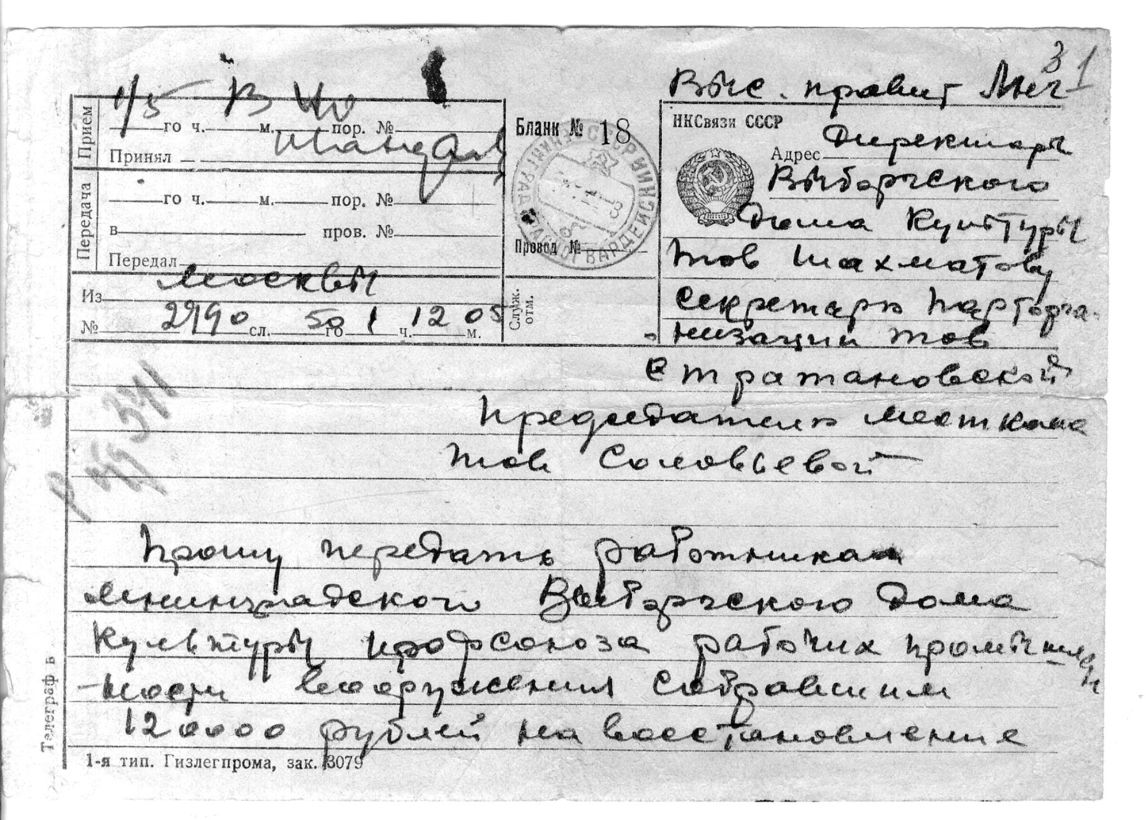 31
Выс. правит Лнг
1/5
Прием
го ч. м. пор. №
Принял
Передача
го ч. м. пор. №
в пров. №
Передал
Из Москвы
№ 2990 сл. 50 го 1 ч. 12 05 м.
Бланк № 18
Провод №
Служ. отм.
НКСвязи СССР
Адрес Директору
Выборгского
Дома Культуры
тов Шахматову
секретарю парторга-
низации тов
Стратановской
Председателю месткома
тов Соловьевой
Прошу передать работникам
Ленинградского Выборгского Дома
Культуры профсоюза рабочих промышлен
-ности вооружения собравшим
120000 рублей на восстановление
Телеграф в.
1-я тип. Гизлегпрома, зак. 3079